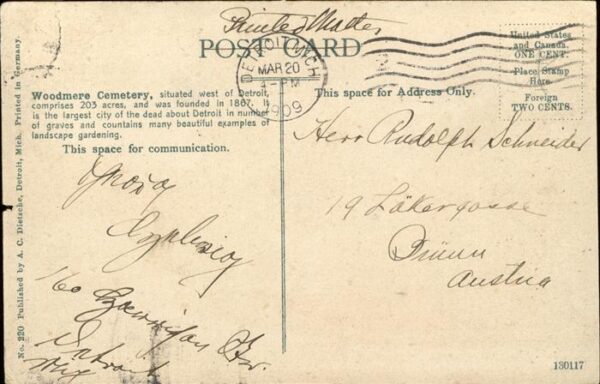 Printed Matter
POST CARD
DETROIT, MICH.
MAR 20
4-PM
1909
United States
and Canada.
ONE CENT.
Place Stamp
Here.
Foreign
TWO CENTS.
Woodmere Cemetery, situated west of Detroit,
comprises 203 acres, and was founded in 1867. It
is the largest city of the dead about Detroit in number
of graves and countains many beautiful examples of
landscape gardening.
This space for communication.
This space for Address Only.
Herr Rudolph Schneider
19 Läkergasse
Brünn
Austria
160
Detroit
No. 220 Published by A. C. Dietsche, Detroit, Mich. Printed in Germany.
130117